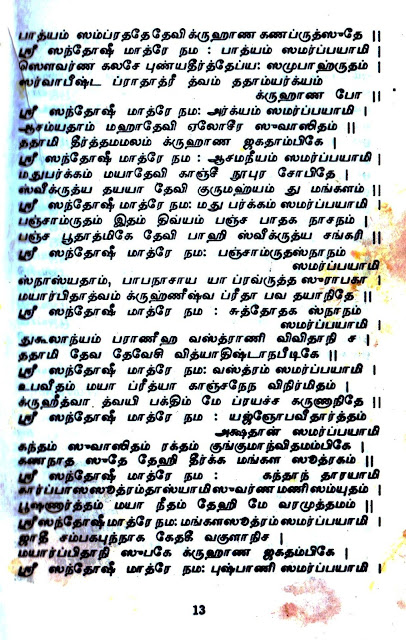 பாத்யம் ஸம்ப்ரததேதேவி க்ருஹாண கணப்ருத்ஸுதே ||
ஸ்ரீ ஸந்தோஷீ மாத்ரே நம : பாத்யம் ஸமர்ப்பயாமி |
ஸௌவர்ண கலசே புண்யதீர்த்தேப்ய: ஸமுபாஹ்ருதம் |
ஸர்வாபீஷ்ட ப்ராதாத்ரீ த்வம் ததாம்யர்க்யம்
க்ருஹாண போ ||
ஸ்ரீ ஸந்தோஷீ மாத்ரே நம: அர்க்யம் ஸமர்ப்பயாமி |
ஆசம்யதாம் மஹாதேவி ஏலோசீர ஸுவாஸிதம் ||
ததாமி தீர்த்தமமலம் க்ருஹாண ஜகதாம்பிகே |
ஸ்ரீ ஸந்தோஷீ மாத்ரே நம : ஆசமனீயம் ஸமர்ப்பயாமி |
மதுபர்க்கம் மயாதேவி காஞ்சீ நூபுர சோபிதே |
ஸ்வீக்ருத்ய தயயா தேவி குருமஹ்யம் து மங்களம் ||
ஸ்ரீ ஸந்தோஷீ மாத்ரே நம: மது பர்க்கம் ஸமர்ப்பயாமி |
பஞ்சாம்ருதம் இதம் திவ்யம் பஞ்ச பாதக நாசநம் |
பஞ்ச பூதாத்மிகே தேவி பாஹி ஸ்வீக்ருத்ய சங்கரி ||
ஸ்ரீ ஸந்தோஷீ மாத்ரே நம: பஞ்சாம்ருதஸ்நாநம்
ஸமர்ப்பயாமி
ஸ்நாஸ்யதாம், பாபநாசாய யா ப்ரவ்ருத்த ஸுராபகா |
மயார்பிதாத்வம் க்ருஹ்ணீஷ்வ ப்ரீதா பவ தயாநிதே ||
ஸ்ரீ ஸந்தோஷீ மாத்ரே நம : சுத்தோதக ஸ்நாநம்
ஸமர்ப்பயாமி
துகூலாந்யம் பராணீஹ வஸ்த்ராணி விவிதாநி ச |
ததாமி தேவ தேவேசி வித்யாதிஷ்டாநபீடிகே ||
ஸ்ரீ ஸந்தோஷீ மாத்ரே நம: வஸ்த்ரம் ஸமர்ப்பயாமி |
உபவீதம் மயா ப்ரீத்யா காஞ்சநேந விநிர்மிதம் |
க்ருஹீத்வா த்வயி பக்திம் மே ப்ரயச்ச கருணாநிதே |
ஸ்ரீ ஸந்தோஷீ மாத்ரே நம : யஜ்ஞோபவீதார்த்தம்
அக்ஷதான் ஸமர்ப்பயாமி
கந்தம் ஸுவாஸிதம் ரக்தம் குங்குமாந்விதமம்பிகே |
கணநாத ஸுதே தேஹி தீர்க்க மங்கள ஸூத்ரகம் ||
ஸ்ரீ ஸந்தோஷீ மாத்ரே நம : கந்தாந் தாரயாமி
கார்ப்பாஸஸூத்ரம்தாஸ்யாமிஸுவர்ண மணிஸம்யுதம் |
பூஷணார்த்தம் மயா நீதம் தேஹி மே வரமுத்தமம் ||
ஸ்ரீ ஸந்தோஷீ மாத்ரே நம: மங்களஸூத்ரம் ஸமர்ப்பயாமி |
ஜாதீ சம்பகபுந்நாக கேதகீ வகுளாநிச |
மயார்ப்பிதாநி ஸுபகே க்ருஹாண ஜகதம்பிகே |
ஸ்ரீ ஸந்தோஷீ மாத்ரே நம: புஷ்பாணி ஸமர்ப்பயாமி |
13